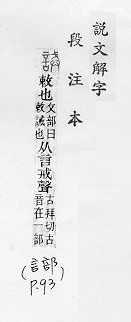 説文解字
段注本
誡
敕也攴部曰敕誡也从言戒聲古拜切古音在一部
(言部)
P.93